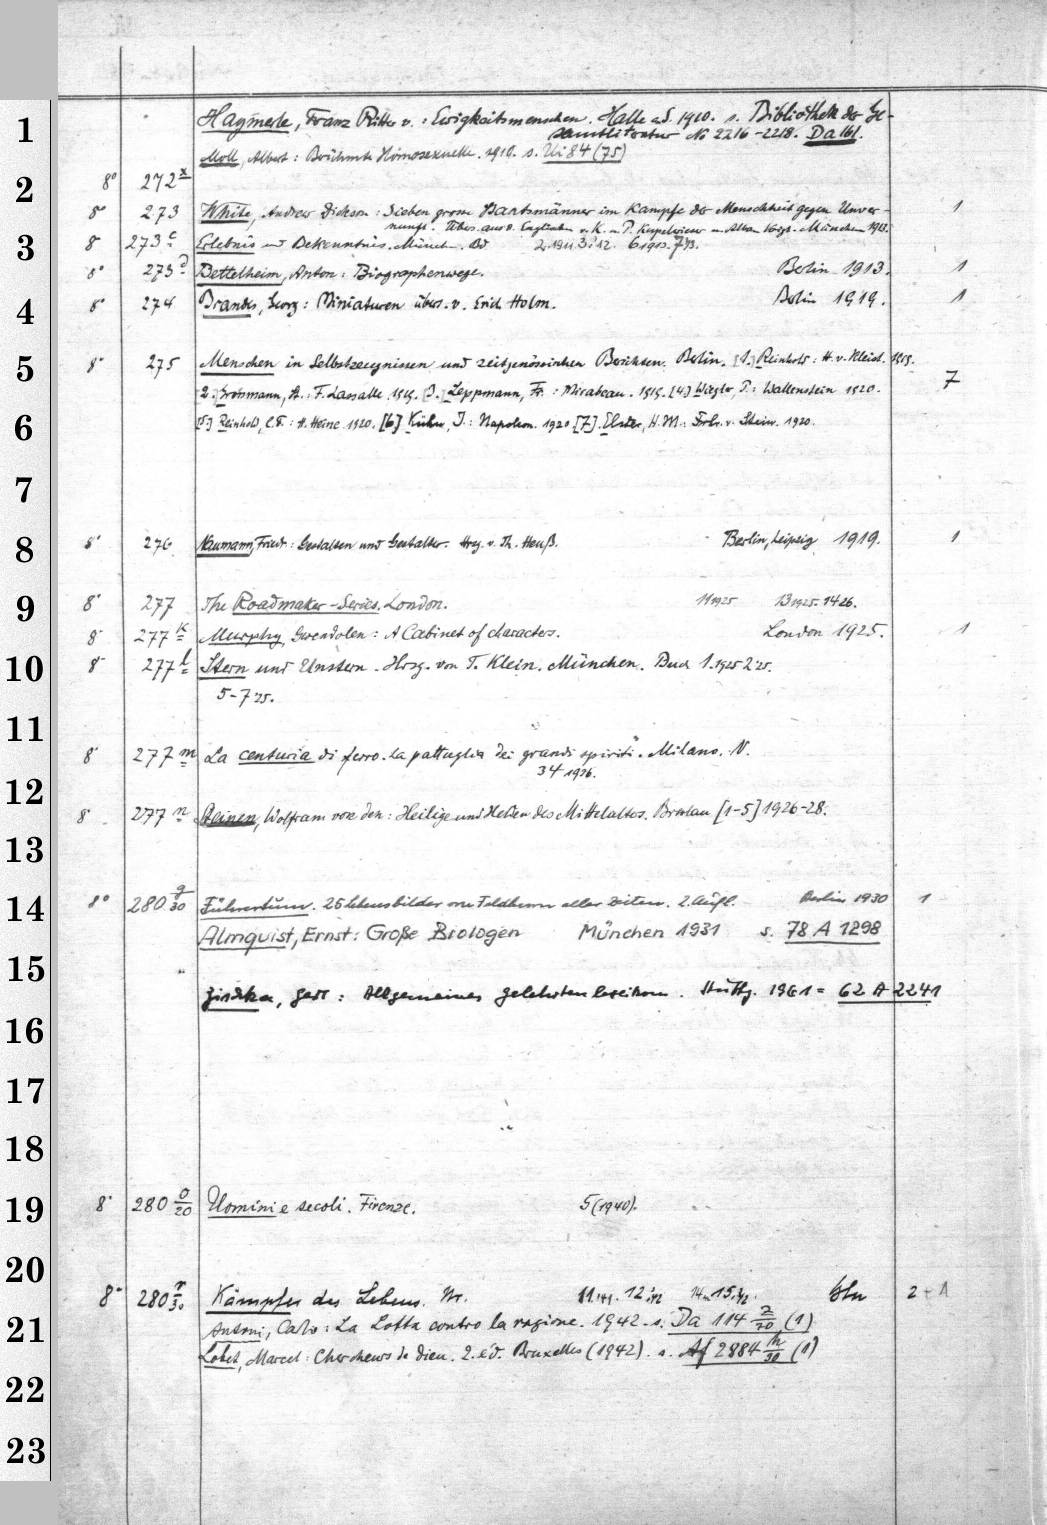 1 Haymerle, Franz Ritter v.: Ewigkeitsmenschen. Halle a. S. 1910. s. Bibliothek der Ge-
samtliteratur No 2216-2218. Da 161.
Moll, Albert: Berühmte Homosexuelle. 1910. s. Ui 84 (75)
2 8° 272 x
8° 273 White, Andrew Dickson: Sieben grosse Staatsmänner im Kampfe der Menschheit gegen Unver- 1
nunft. Übers. aus d. Englischen v. K. u. P. Kupelwieser München 1913.
3 8° 273 c Erlebnis und Bekenntnis. München. Bd 2. 1911 3. 12. 6 1903. 7 13.
8° 273 d Bettelheim, Anton: Biographenwege. Berlin 1913. 1
4 8° 274 Brandes, Georg: Miniaturen übers. v. Erich Holm. Berlin 1919. 1
5 8° 275 Menschen in Selbstzeugnissen und zeitgenössischen Berichten. Berlin. [1.] Reinhold: H. v. Kleist. 1919.
2.] Grossmann, St.: F. Lassalle 1919. [3.] Leppmann, Fr.: Mirabeau. 1919. [4] Wiegler, P.: Wallenstein 1920. 7
6 [5.] Reinhold, C. F.: H. Heine 1920. [6] Kühn, J.: Napoleon. 1920 [7]. Elster, H. M.: Frhr. v. Stein. 1920.
7
8 8° 276 Naumann, Friedr.: Gestalten und Gestalter. Hrsg. v. Th. Heuß. Berlin, Leipzig 1919. 1
9 8° 277 The Roadmaker-Series. London. 11 1925 13 1925. 14 26.
8° 277 k Murphy, Gwendolen: A Cabinet of characters. London 1925. 1
10 8° 277 l Stern und Unstern. Hrsg. von T. Klein. München. Buch 1. 1925 2 25.
5-7 25.
11
8° 277 m La centuria di ferro. La pattuglia dei grandi spiriti. Milano. N.
34 1926.
12 8° 277 n Steinen, Wolfram von den: Heilige und Helden des Mittelalters. Breslau [1-5] 1926-28.
13
14 8° 280 g/30 Führertum. 25 Lebensbilder von Feldherren aller Zeiten. 2. Aufl. Berlin 1930 1
Almquist, Ernst: Große Biologen München 1931 s. 78 A 1298
15
Zischka, Gert: Allgemeines Gelehrtenlexikon. Stuttg. 1961 = 62 A 2241
16
17
18
19 8° 280 o/20 Uomini e secoli. Firenze. 5 (1940).
20
8° 280 r/30 Kämpfer des Lebens. Nr. 11. 41. 12. 42 14 u. 15. 42. Bln 2 + 1
21 Antoni, Carlo: La Lotta contro la ragione. 1942. s. Da 114 2/70 (1)
Lobet, Marcel: Chercheurs de dieu. 2. éd. Bruxelles (1942). s. Af 2884 h/30 (1)
22
23